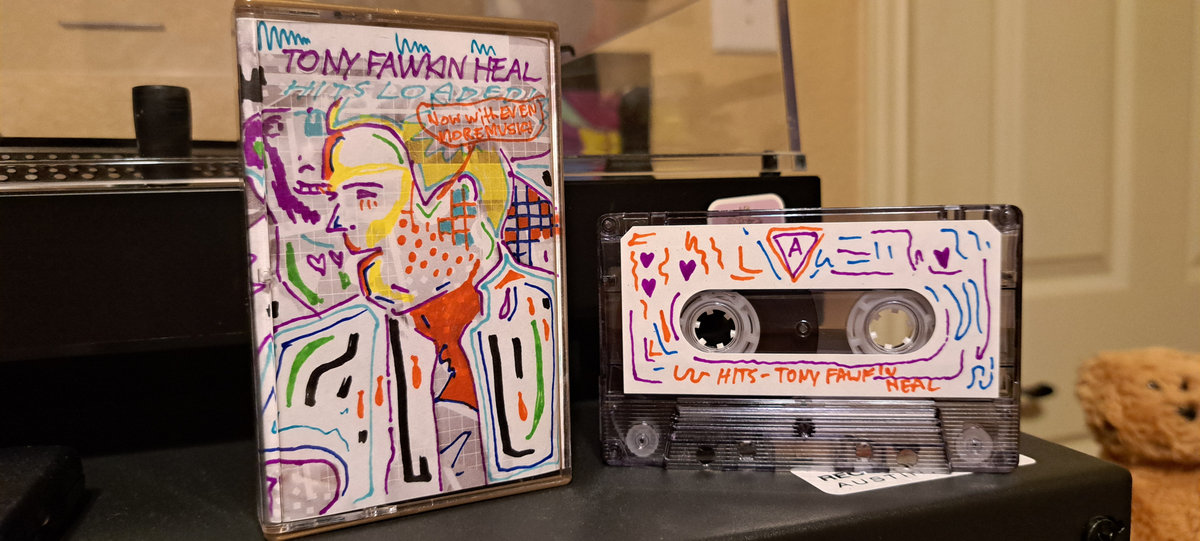 TONY FAWKIN HEAL
HITS LOADED!
NOW WITH EVEN
MORE MUSIK!
A
HITS - TONY FAWKIN
HEAL
REC
AUSTIN